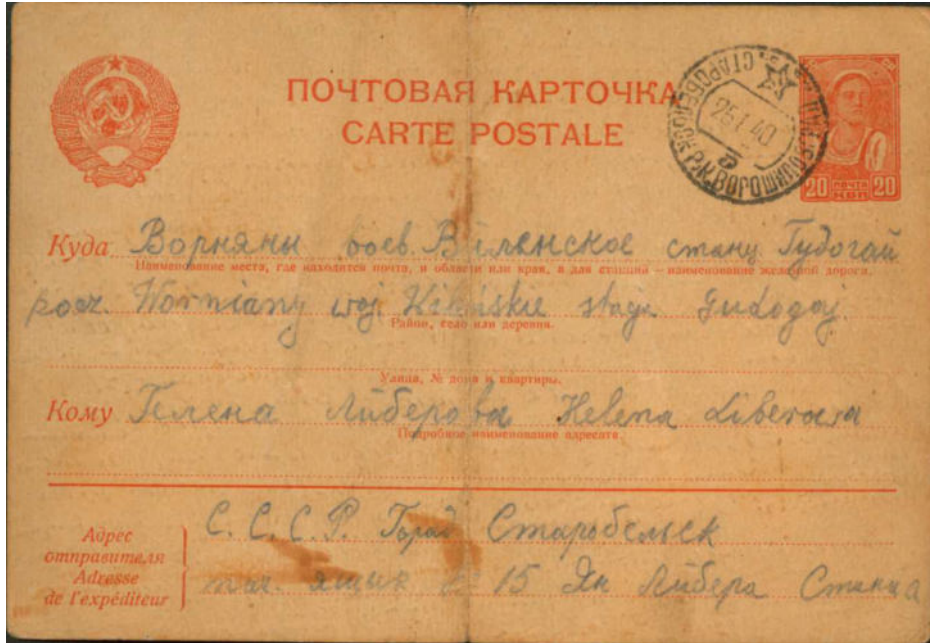 ПОЧТОВАЯ КАРТОЧКА
CARTE POSTALE
СТАРОБЕЛЬСК
26.1.40
20 ПОЧТА 20
Куда Ворняны воев. Виленское станц. Гудогай
Наименование места, где находится почта, и области или края, а для станций — наименование железной дороги.
pocz. Worniany woj. Wileńskie stacja Gudogaj.
Район, село или деревня.
Улица, № дома и квартиры.
Кому Гелена Либерова Helena Liberowa
Подробное наименование адресата.
Адрес отправителя
Adresse de l'expéditeur
С. С. С. Р. Город Старобельск
ящик № 15 Ян Либера